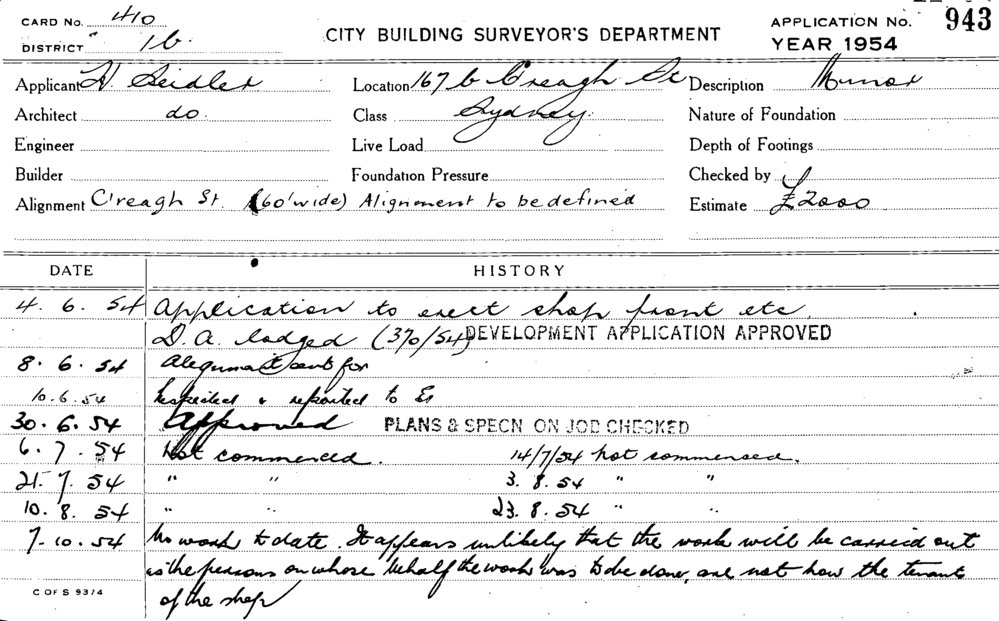 CARD No. 410
DISTRICT 1b.
CITY BUILDING SURVEYOR'S DEPARTMENT
APPLICATION No. 943
YEAR 1954
Applicant H. Seidler
Location 167 C'reagh St
Description Minor
Architect do.
Class Sydney.
Nature of Foundation
Engineer
Live Load
Depth of Footings
Builder
Foundation Pressure
Checked by
Alignment C'reagh St. (60' wide) Alignment to be defined
Estimate £2000
DATE HISTORY
4. 6. 54 Application to erect shop front etc.
D. A. lodged (370/54) DEVELOPMENT APPLICATION APPROVED
8. 6. 54 Alignment sent for
10.6.54 Inspected & reported to
30. 6. 54 Approved PLANS & SPECN ON JOB CHECKED
6. 7. 54 Not commenced. 14/7/54 not commenced.
21. 7. 54 " " 3. 8. 54 " "
10. 8. 54 " " 23. 8. 54 " "
7. 10. 54 No work to date. It appears unlikely that the work will be carried out
as the persons on whose behalf the work was to be done, are not now the tenant
of the shop
C OF S 93/4